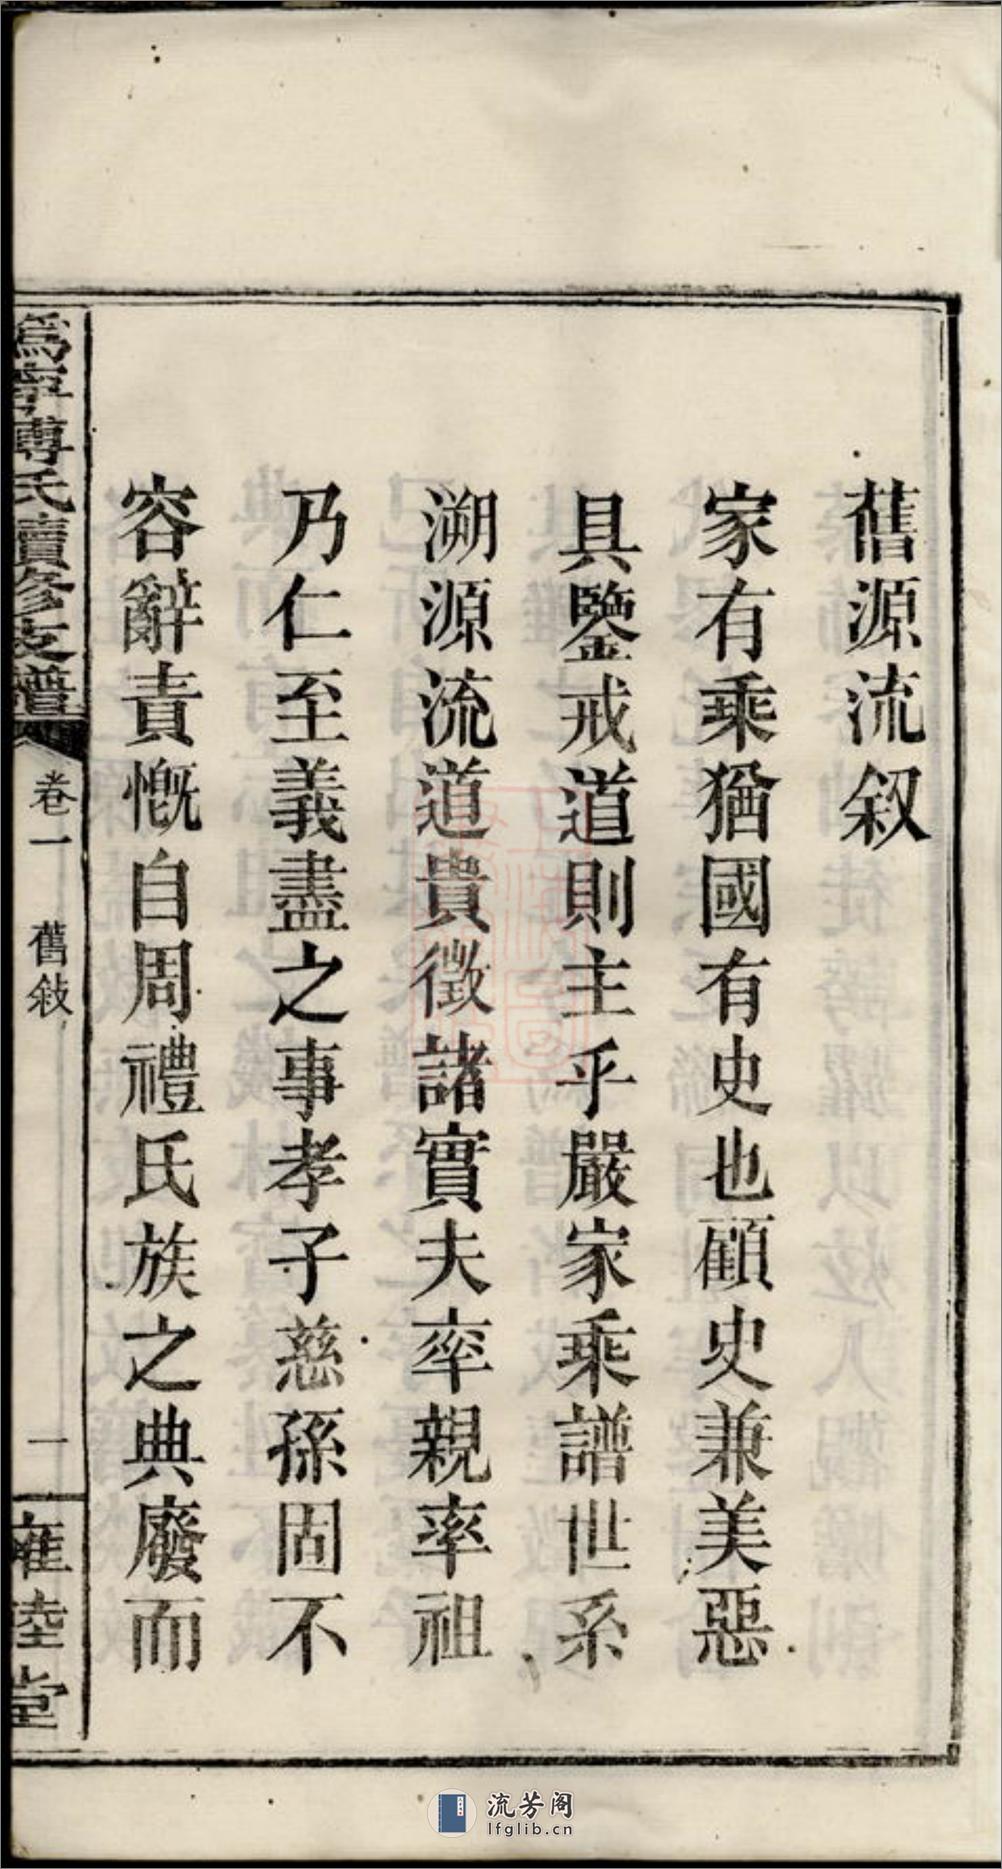 舊源流叙
家有乘猶國有史也顧史兼美惡
具鑒戒道則主乎嚴家乘譜世系
溯源流道貴徵諸實夫率親率祖
乃仁至義盡之事孝子慈孫固不
容辭責慨自周禮氏族之典廢而
為寧傅氏續修支譜
卷一 舊敍 一
雍睦堂
流芳阁
lfglib.cn